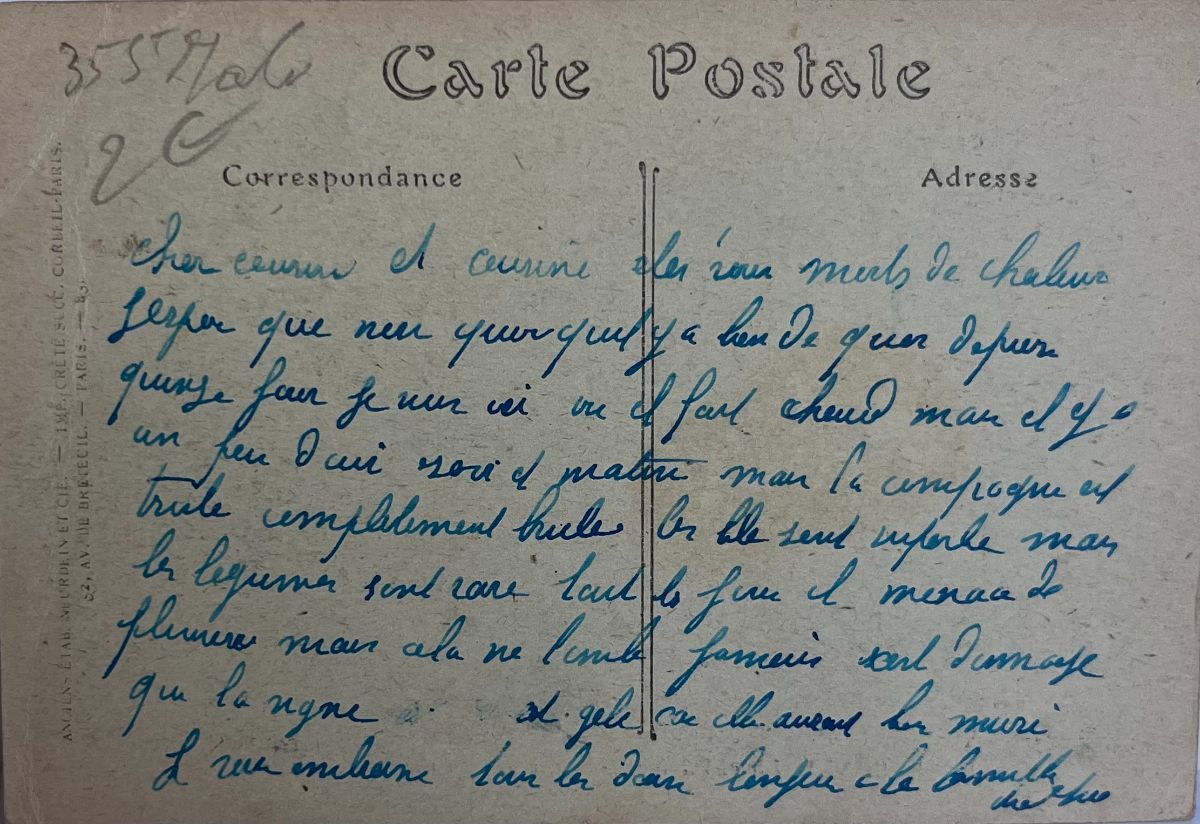 355 Malo
2
Carte Postale
Correspondance
Adresse
ANCIENS ÉTAB. NEURDEIN ET CIE. — IMP. CRÉTÉ SUCC. CORBEIL-PARIS.
52, AV. DE BRETEUIL. — PARIS. —
cher cousin et cousine etes vous morts de chaleur
Jesper que non quoi quil y a bien de quoi depuis
quinze jour je suis ici ou il fait chaud mais il y a
un peu dair soir et matin mais la compagne est
triste completement brule les blle sont superbe mais
les legumes sont rare tout les jour il menace de
pluie mais cela ne tombe jamais cest domage
que la vigne est gele car elle aurait bien muri
Je vous embrasse tous les deux bonjour a la famille